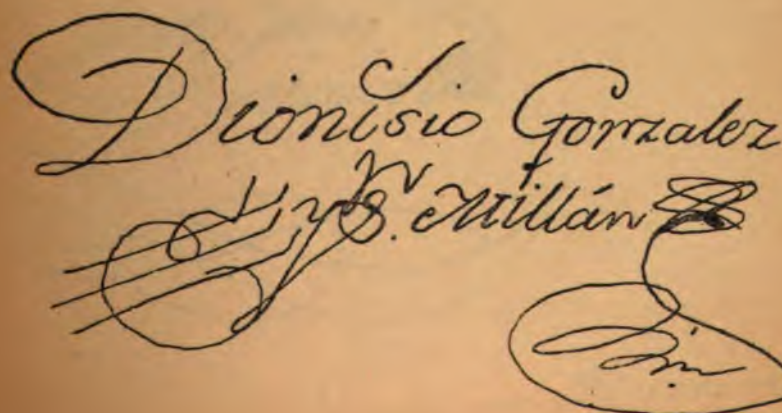 Dionisio Gonzalez
y S. Millán